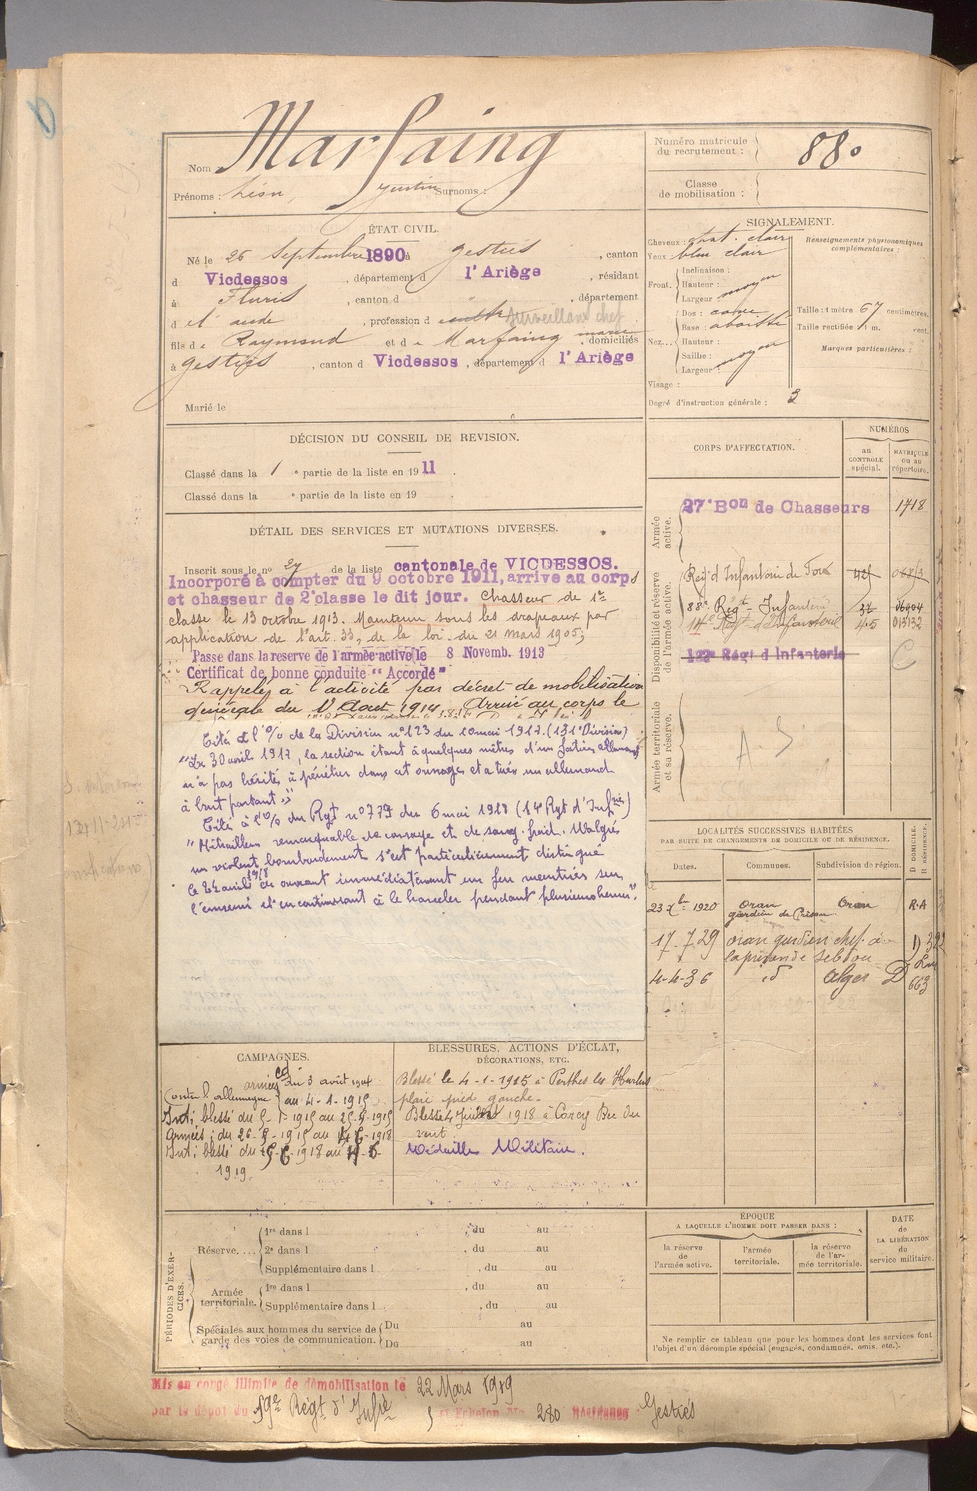 Nom Marfaing
Prénoms : Léon, Justin Surnoms :
Numéro matricule du recrutement : 880
Classe de mobilisation :
ÉTAT CIVIL.
Né le 26 Septembre 1890 à Gestiès, canton
d Vicdessos, département d l'Ariège, résidant
à Fleuris, canton d , département
d l'aude, profession d surveillant chef
fils de Raymond et de Marfaing marie, domiciliés
à Gestiès, canton d Vicdessos, département d l'Ariège
Marié le
SIGNALEMENT.
Cheveux : chat. clair
Yeux : bleu clair
Front.
Inclinaison :
Hauteur :
Largeur : moyen
Nez...
Dos : cave
Base : abaissée
Hauteur :
Saillie :
Largeur : moyen
Visage :
Degré d'instruction générale : 3
Renseignements physionomiques complémentaires :
Taille : 1 mètre 67 centimètres.
Taille rectifiée : 1 m. cent.
Marques particulières :
DÉCISION DU CONSEIL DE REVISION.
Classé dans la 1 e partie de la liste en 1911.
Classé dans la e partie de la liste en 19 .
DÉTAIL DES SERVICES ET MUTATIONS DIVERSES.
Inscrit sous le no 27 de la liste cantonale de VICDESSOS.
Incorporé à compter du 9 octobre 1911, arrivé au corps
et chasseur de 2e classe le dit jour. Chasseur de 1re
classe le 13 octobre 1913. Maintenu sous les drapeaux par
application de l'art. 33, de la loi du 21 mars 1905.
Passé dans la reserve de l'armée active le 8 Novemb. 1913
Certificat de bonne conduite "Accordé"
Rappelé à l'activité par décret de mobilisation
générale du 1er Aout 1914. Arrivé au corps le
Cité à l'% de la Division n° 123 du 10 mai 1917. (131e Division)
"Le 30 avril 1917, la section étant à quelques mètres d'un fortin allemand
n'a pas hésité à pénétrer dans cet ouvrage et a tué un allemand
à bout portant."
Cité à l'% du Rgt n° 779 du 6 mai 1918 (14e Rgt d'Infrie)
"Mitrailleur remarquable de courage et de sang-froid. Malgré
un violent bombardement s'est particulièrement distingué
le 24 avril 1918 en ouvrant immédiatement un feu meurtrier sur
l'ennemi et en continuant à le harceler pendant plusieurs heures."
CORPS D'AFFECTATION.
NUMÉROS
au contrôle spécial.
matricule ou au répertoire.
Armée active.
27e Bon de Chasseurs 1718
Disponibilité et réserve de l'armée active.
Regt d'Infanterie de Foix
88e Régt Infanterie
14e Regt d'Infanterie 45 013132
122e Régt d'Infanterie
Armée territoriale et sa réserve.
A. S
LOCALITÉS SUCCESSIVES HABITÉES
PAR SUITE DE CHANGEMENTS DE DOMICILE OU DE RÉSIDENCE.
Dates. Communes. Subdivision de région.
D DOMICILE. R RÉSIDENCE.
23 Xbre 1920 Oran gardien de Prison Oran R.A
17-7-29 oran gardien chef à
la prison de Sebdou
4-4-36 id Alger D 663
CAMPAGNES.
Contre l'allemagne armées du 3 août 1914
au 4-1-1915
Int; blessé du 5-1-1915 au 25-8-1915
Armées; du 26-8-1915 au
Int; blessé du
1919.
BLESSURES, ACTIONS D'ÉCLAT,
DÉCORATIONS, ETC.
Blessé le 4-1-1915 à Perthes les Hurlus
plaie pied gauche.
Blessé 1918 à
Médaille Militaire.
PÉRIODES D'EXERCICES.
Réserve....
1re dans l , du au
2e dans l , du au
Supplémentaire dans l , du au
Armée territoriale.
1re dans l , du au
Supplémentaire dans l , du au
Spéciales aux hommes du service de garde des voies de communication.
Du au
Du au
ÉPOQUE
A LAQUELLE L'HOMME DOIT PASSER DANS :
la réserve de l'armée active.
l'armée territoriale.
la réserve de l'armée territoriale.
DATE de LA LIBÉRATION du service militaire.
Ne remplir ce tableau que pour les hommes dont les services font
l'objet d'un décompte spécial (engagés, condamnés, omis, etc.).
Mis en congé illimité de démobilisation le 22 Mars 1919
par le dépôt du 59e Régt d'Infie Echelon No 280 Gestiès